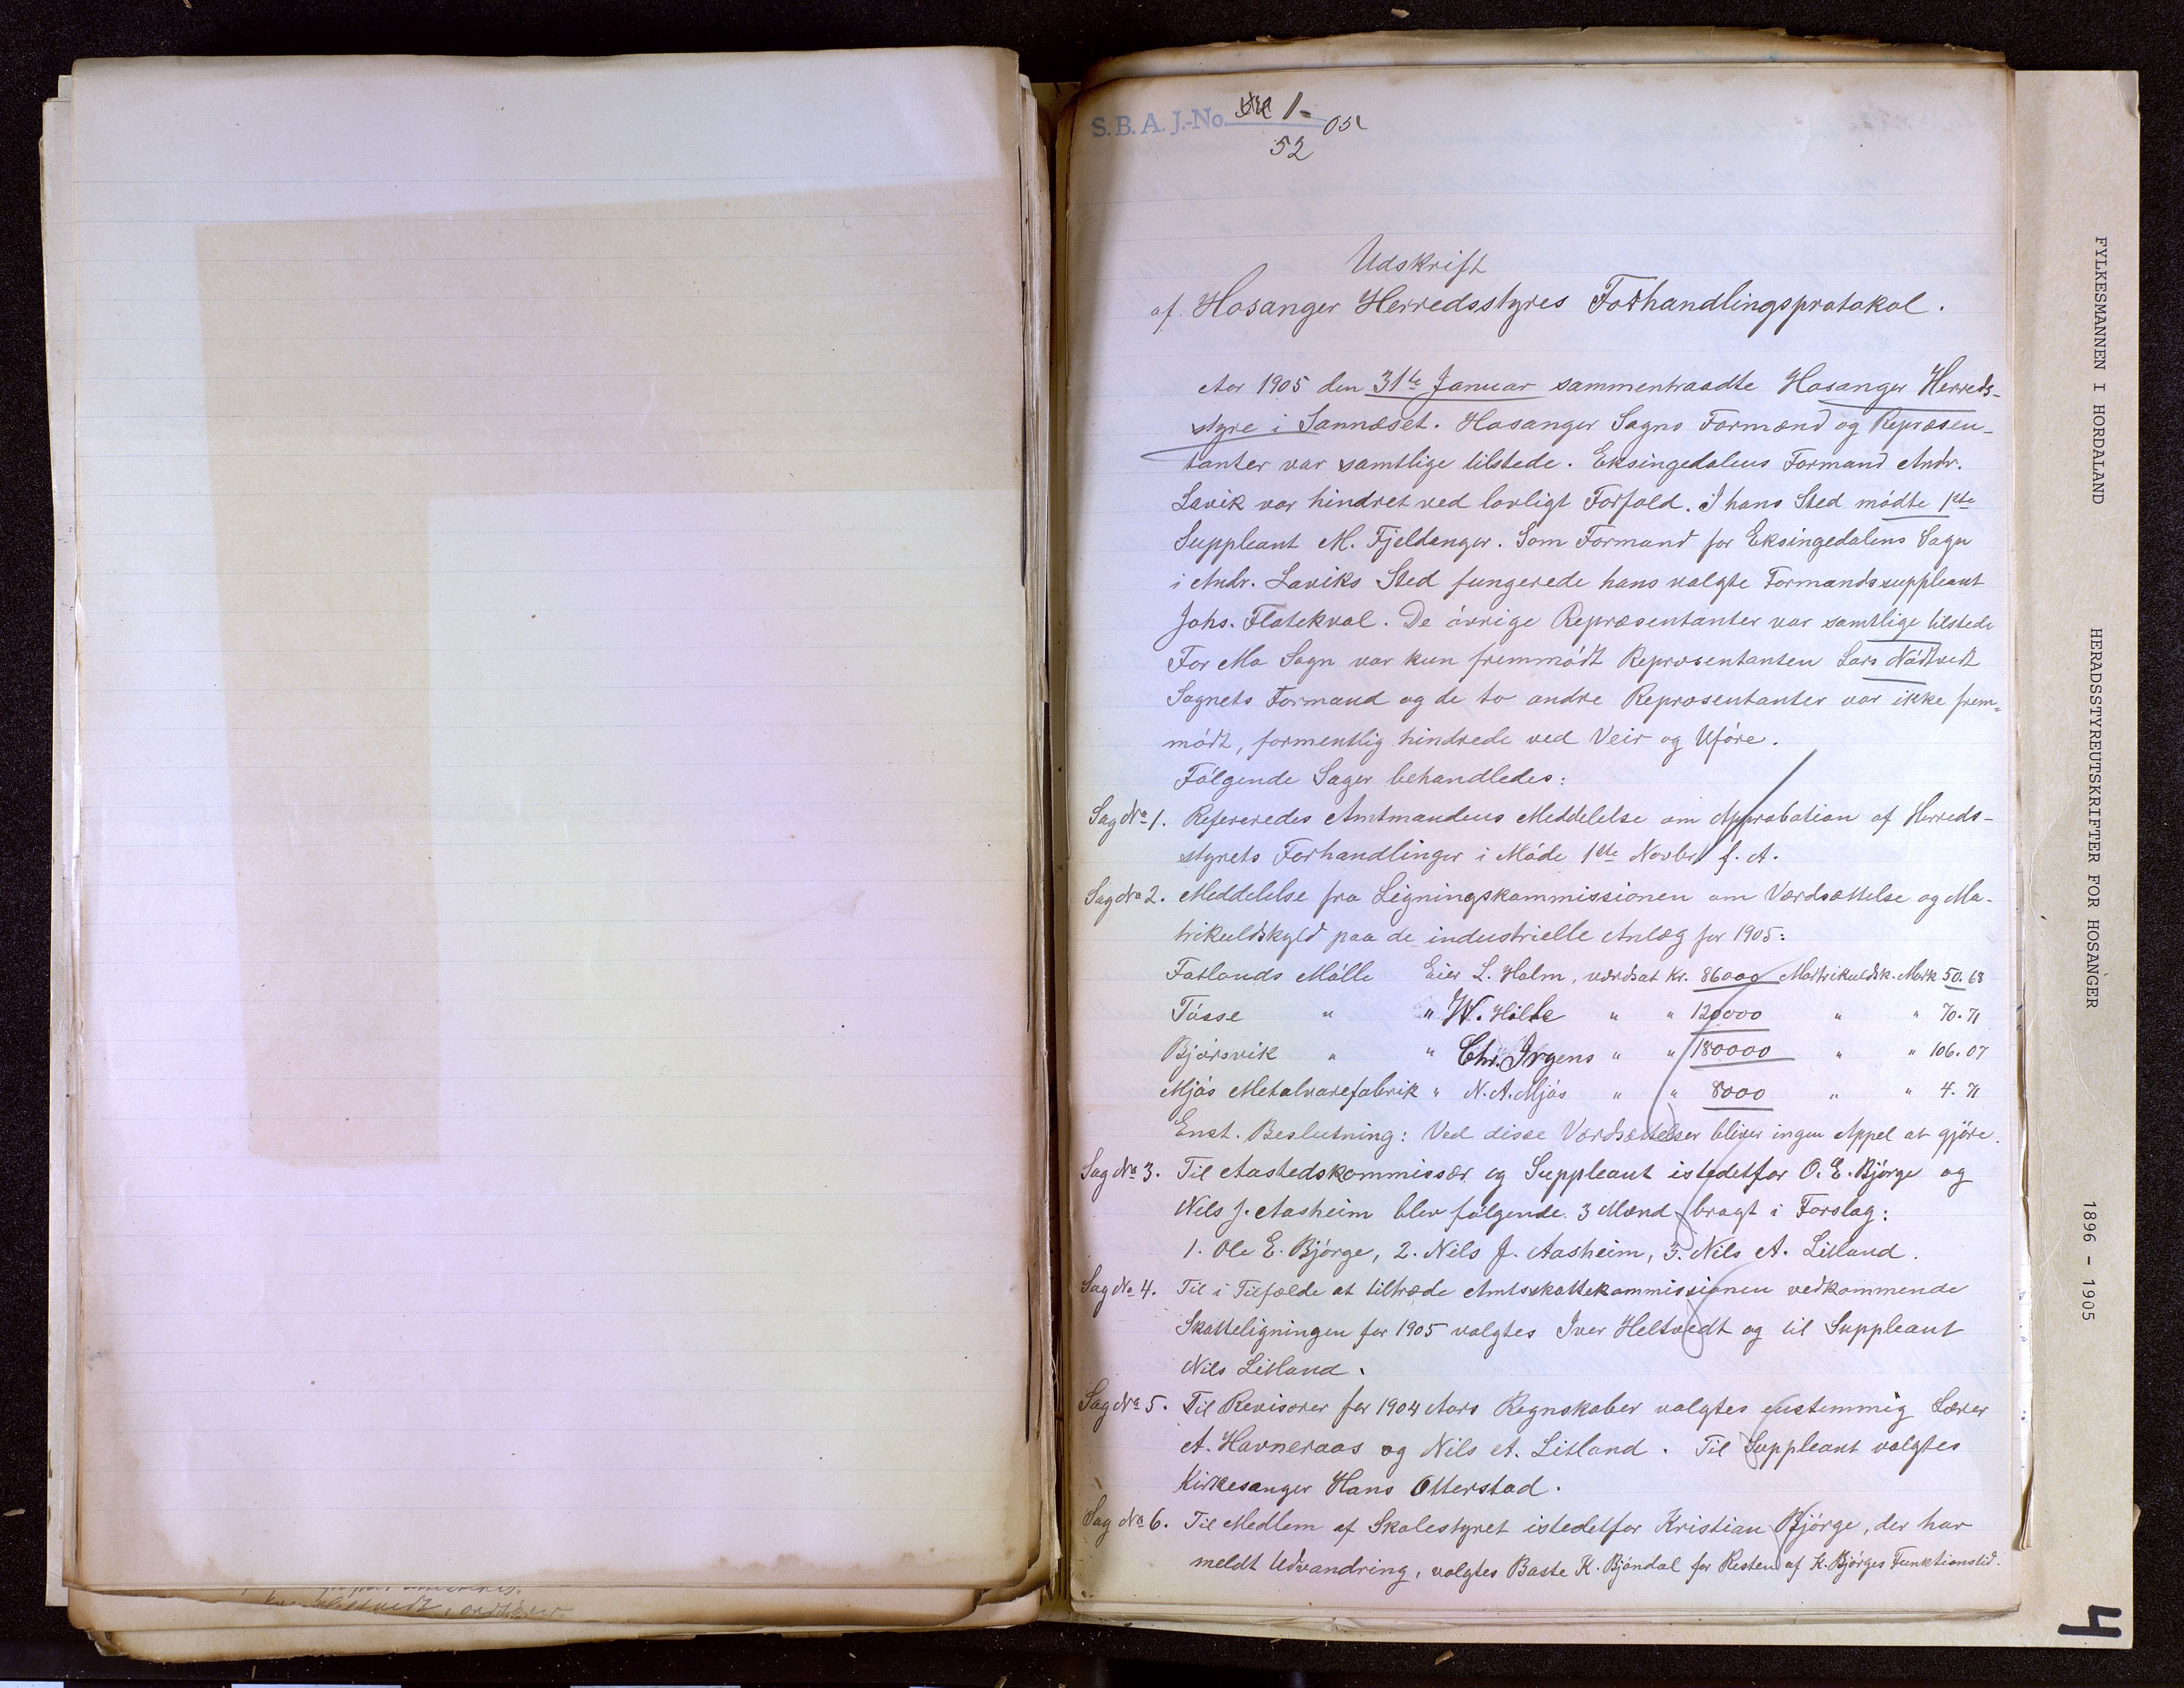 S. B. A. J.-No. 1-
52 05
Udskrift
af Hosanger Herredsstyres Forhandlingsprotokol.
Aar 1905 den 31te Januar sammentraadte Hosanger Herreds-
styre i Sannæset. Hosanger Sogns Formænd og Repræsen-
tanter var samtlige tilstede. Eksingedalens Formand Andr.
Lavik var hindret ved lovligt Forfald. I hans Sted mødte 1ste
Suppleant M. Fjeldanger. Som Formand for Eksingedalens Sogn
i Andr. Laviks Sted fungerede hans valgte Formandssuppleant
Johs. Flatekval. De øvrige Repræsentanter var samtlige tilstede
For Mo Sogn var kun fremmødt Repræsentanten Lars Nødtvedt
Sognets Formand og de to andre Repræsentanter var ikke frem-
mødt, formentlig hindrede ved Veir og Uføre.
Følgende Sager behandledes:
Sag No 1. Refereredes Amtmandens Meddelelse om Approbation af Herreds-
styrets Forhandlinger i Møde 1ste Novbr. f. A.
Sag No 2. Meddelelse fra Ligningskommissionen om Værdsættelse og Ma-
trikulskyld paa de industrielle Anlæg for 1905:
Fatlands Mølle Eier L. Holm, værdsat Kr. 86000 Matrikulsk. Mark 50.68
Tøsse " " W. Hille " " 120000 " " 70.71
Bjørsvik " " Chr. Irgens " " 180000 " " 106.07
Mjøs Metalvarefabrik " N. A. Mjøs " " 8000 " " 4.71
Enst. Beslutning: Ved disse Værdsættelser bliver ingen Appel at gjøre.
Sag No 3. Til Aastedskommissær og Suppleant istedetfor O. E. Bjørge og
Nels J. Aasheim blev følgende 3 Mænd bragt i Forslag:
1. Ole E. Bjørge, 2. Nils J. Aasheim, 3. Nils A. Litland.
Sag No 4. Til i Tilfælde at tiltræde Amtsskattekommissionen vedkommende
Skatteligningen for 1905 valgtes Iver Heltvedt og til Suppleant
Nils Litland.
Sag No 5. Til Revisorer for 1904 Aars Regnskaber valgtes enstemmig Lærer
A. Havneraas og Nils A. Litland. Til Suppleant valgtes
Kirkesanger Hans Otterstad.
Sag No 6. Til Medlem af Skolestyret istedetfor Kristian Bjørge, der har
meldt Udvandring, valgtes Baste K. Bjøndal for Resten af K. Bjørges Funktionstid.
FYLKESMANNEN I HORDALAND HERADSSTYREUTSKRIFTER FOR HOSANGER 1896 - 1905
4